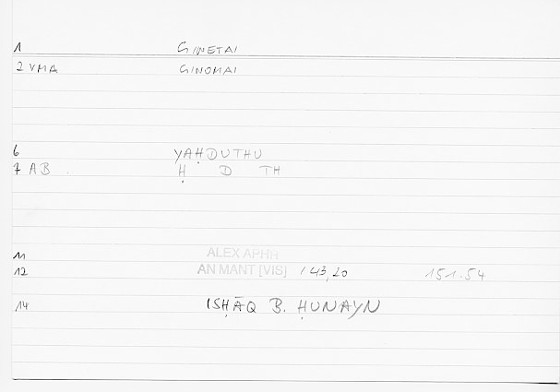 1 GINETAI
2 VMA GINOMAI
6 YAḤDUTHU
7 AB Ḥ D TH
11 ALEX APHR
12 AN MANT [VIS] 143,20 151.54
14 ISḤĀQ B. ḤUNAYN